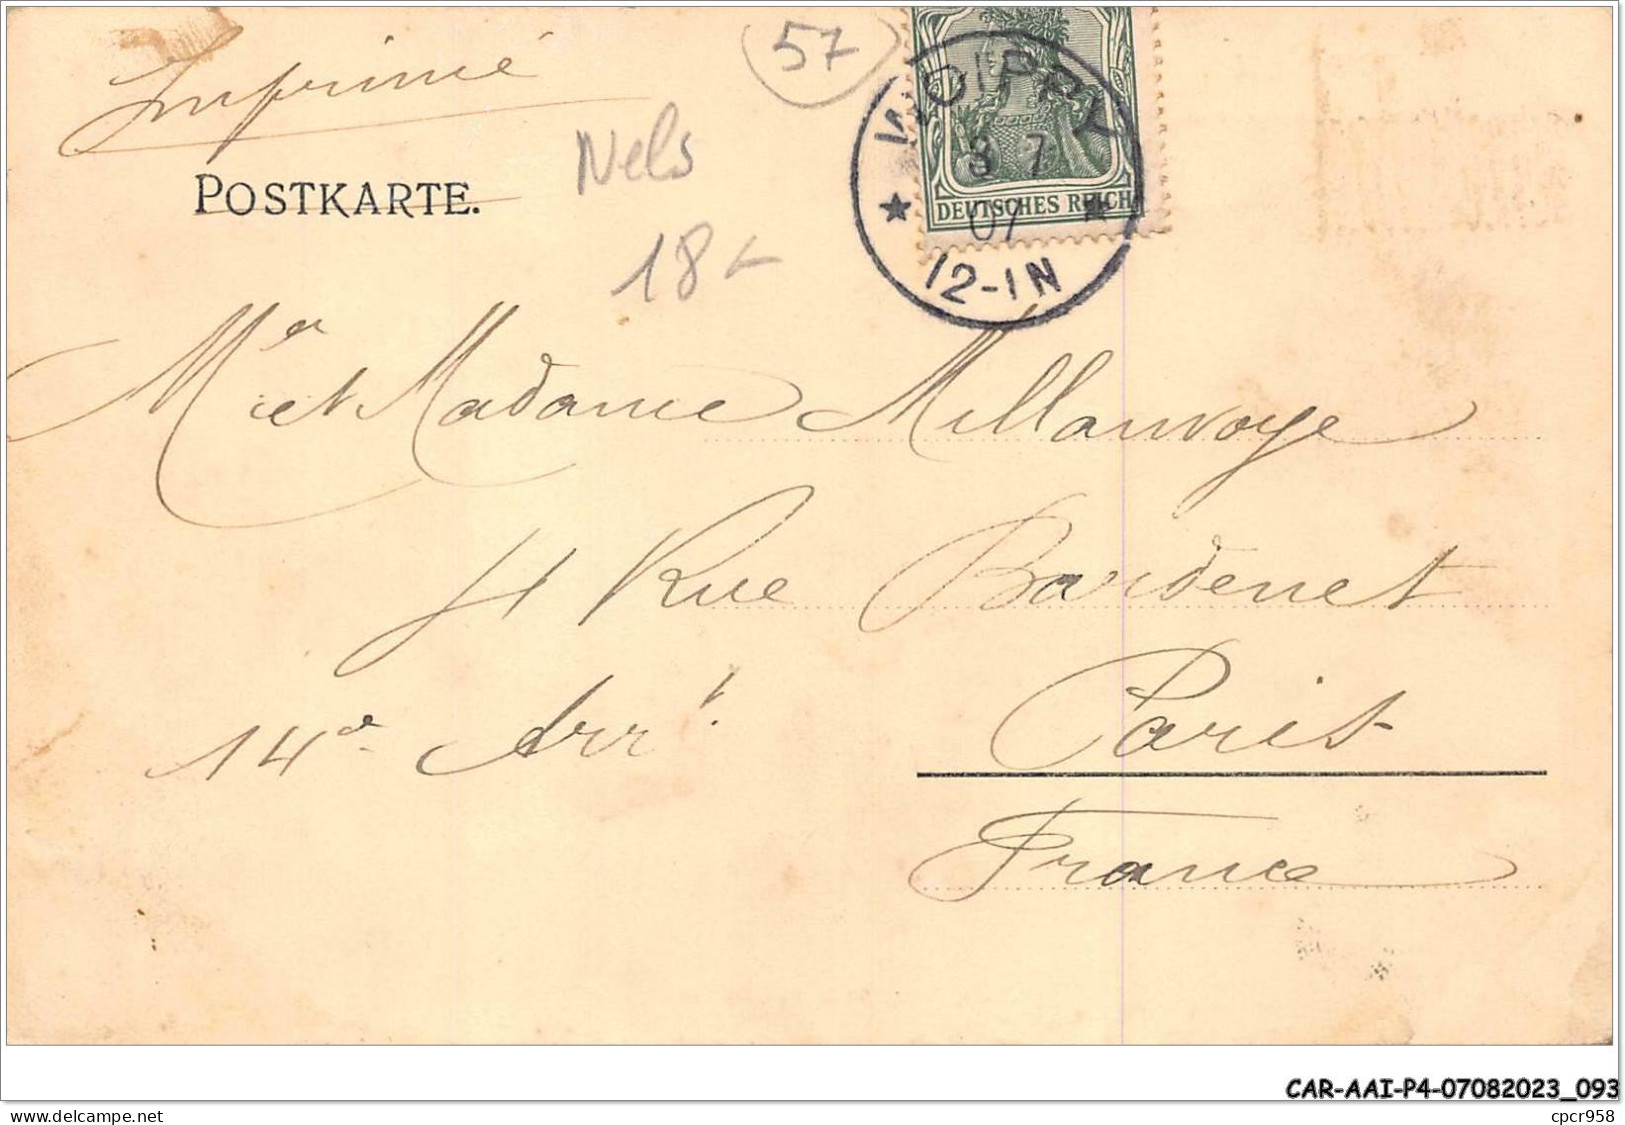 Imprimé
57
POSTKARTE.
Nels
18
WOIPPY
8 7
07
12-1N
DEUTSCHES REICH
Mr et Madame Millanvoye
4 Rue Bardenet
14e Arrt.
Paris
France
CAR-AAI-P4-07082023_093
www.delcampe.net
cpcr958